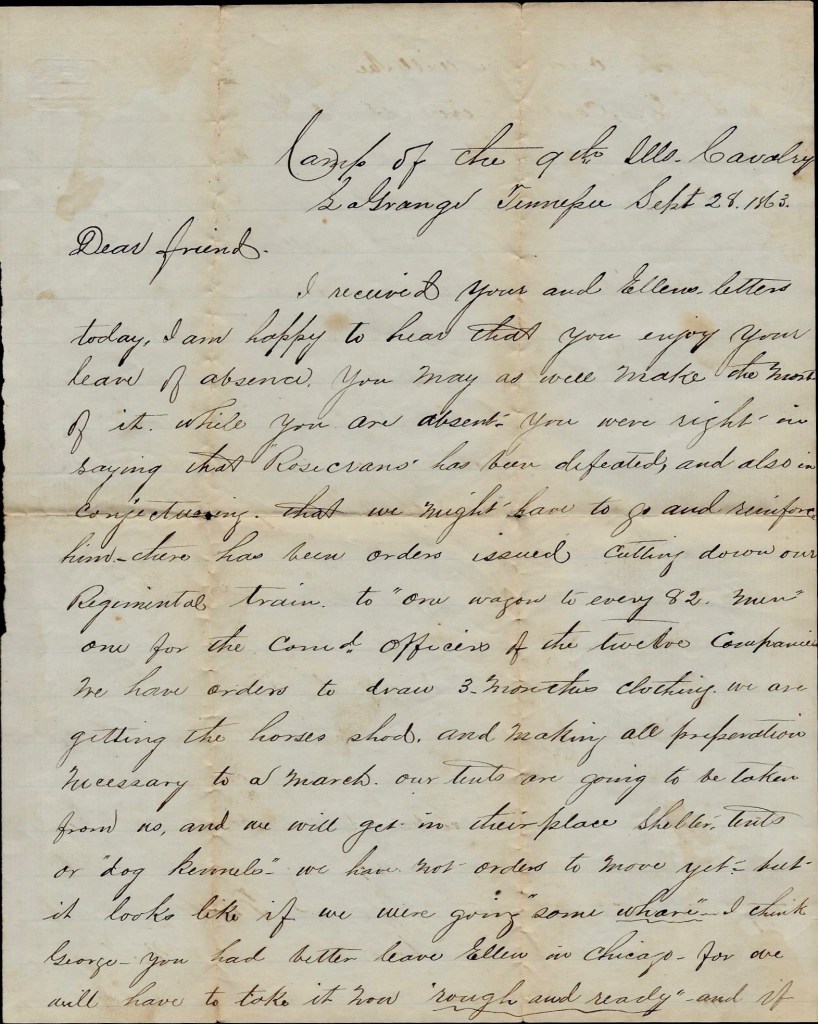 Camp of the 9th Ills. Cavalry
LaGrange Tennessee Sept 28. 1863.
Dear friend.
I received your and Ellens letters
today, I am happy to hear that you enjoy your
leave of absence. You may as well make the most
of it. while you are absent- you were right in
saying that "Rosecrans" has been defeated, and also in
conjectureing. that we might have to go and reinforce
him - there has been orders issued cutting down our
Regimental train. to "one wagon to every 82. men"
one for the Comd. officers of the twelve Companies
We have orders to draw 3-months clothing. we are
getting the horses shod. and making all preperation
necessary to a march. our tents are going to be taken
from us, and we will get in their place shelter, tents
or "dog kennels" - we have not orders to move yet - but
it looks like if we were going "some whare" - I think
George - you had better leave Ellen in Chicago - for we
will have to take it now "rough and ready" - and if